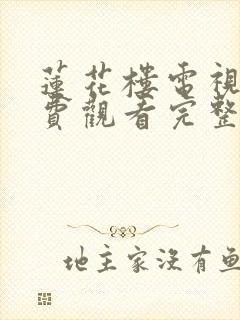 蓮花樓電視
費觀看完整
地主家沒有魚